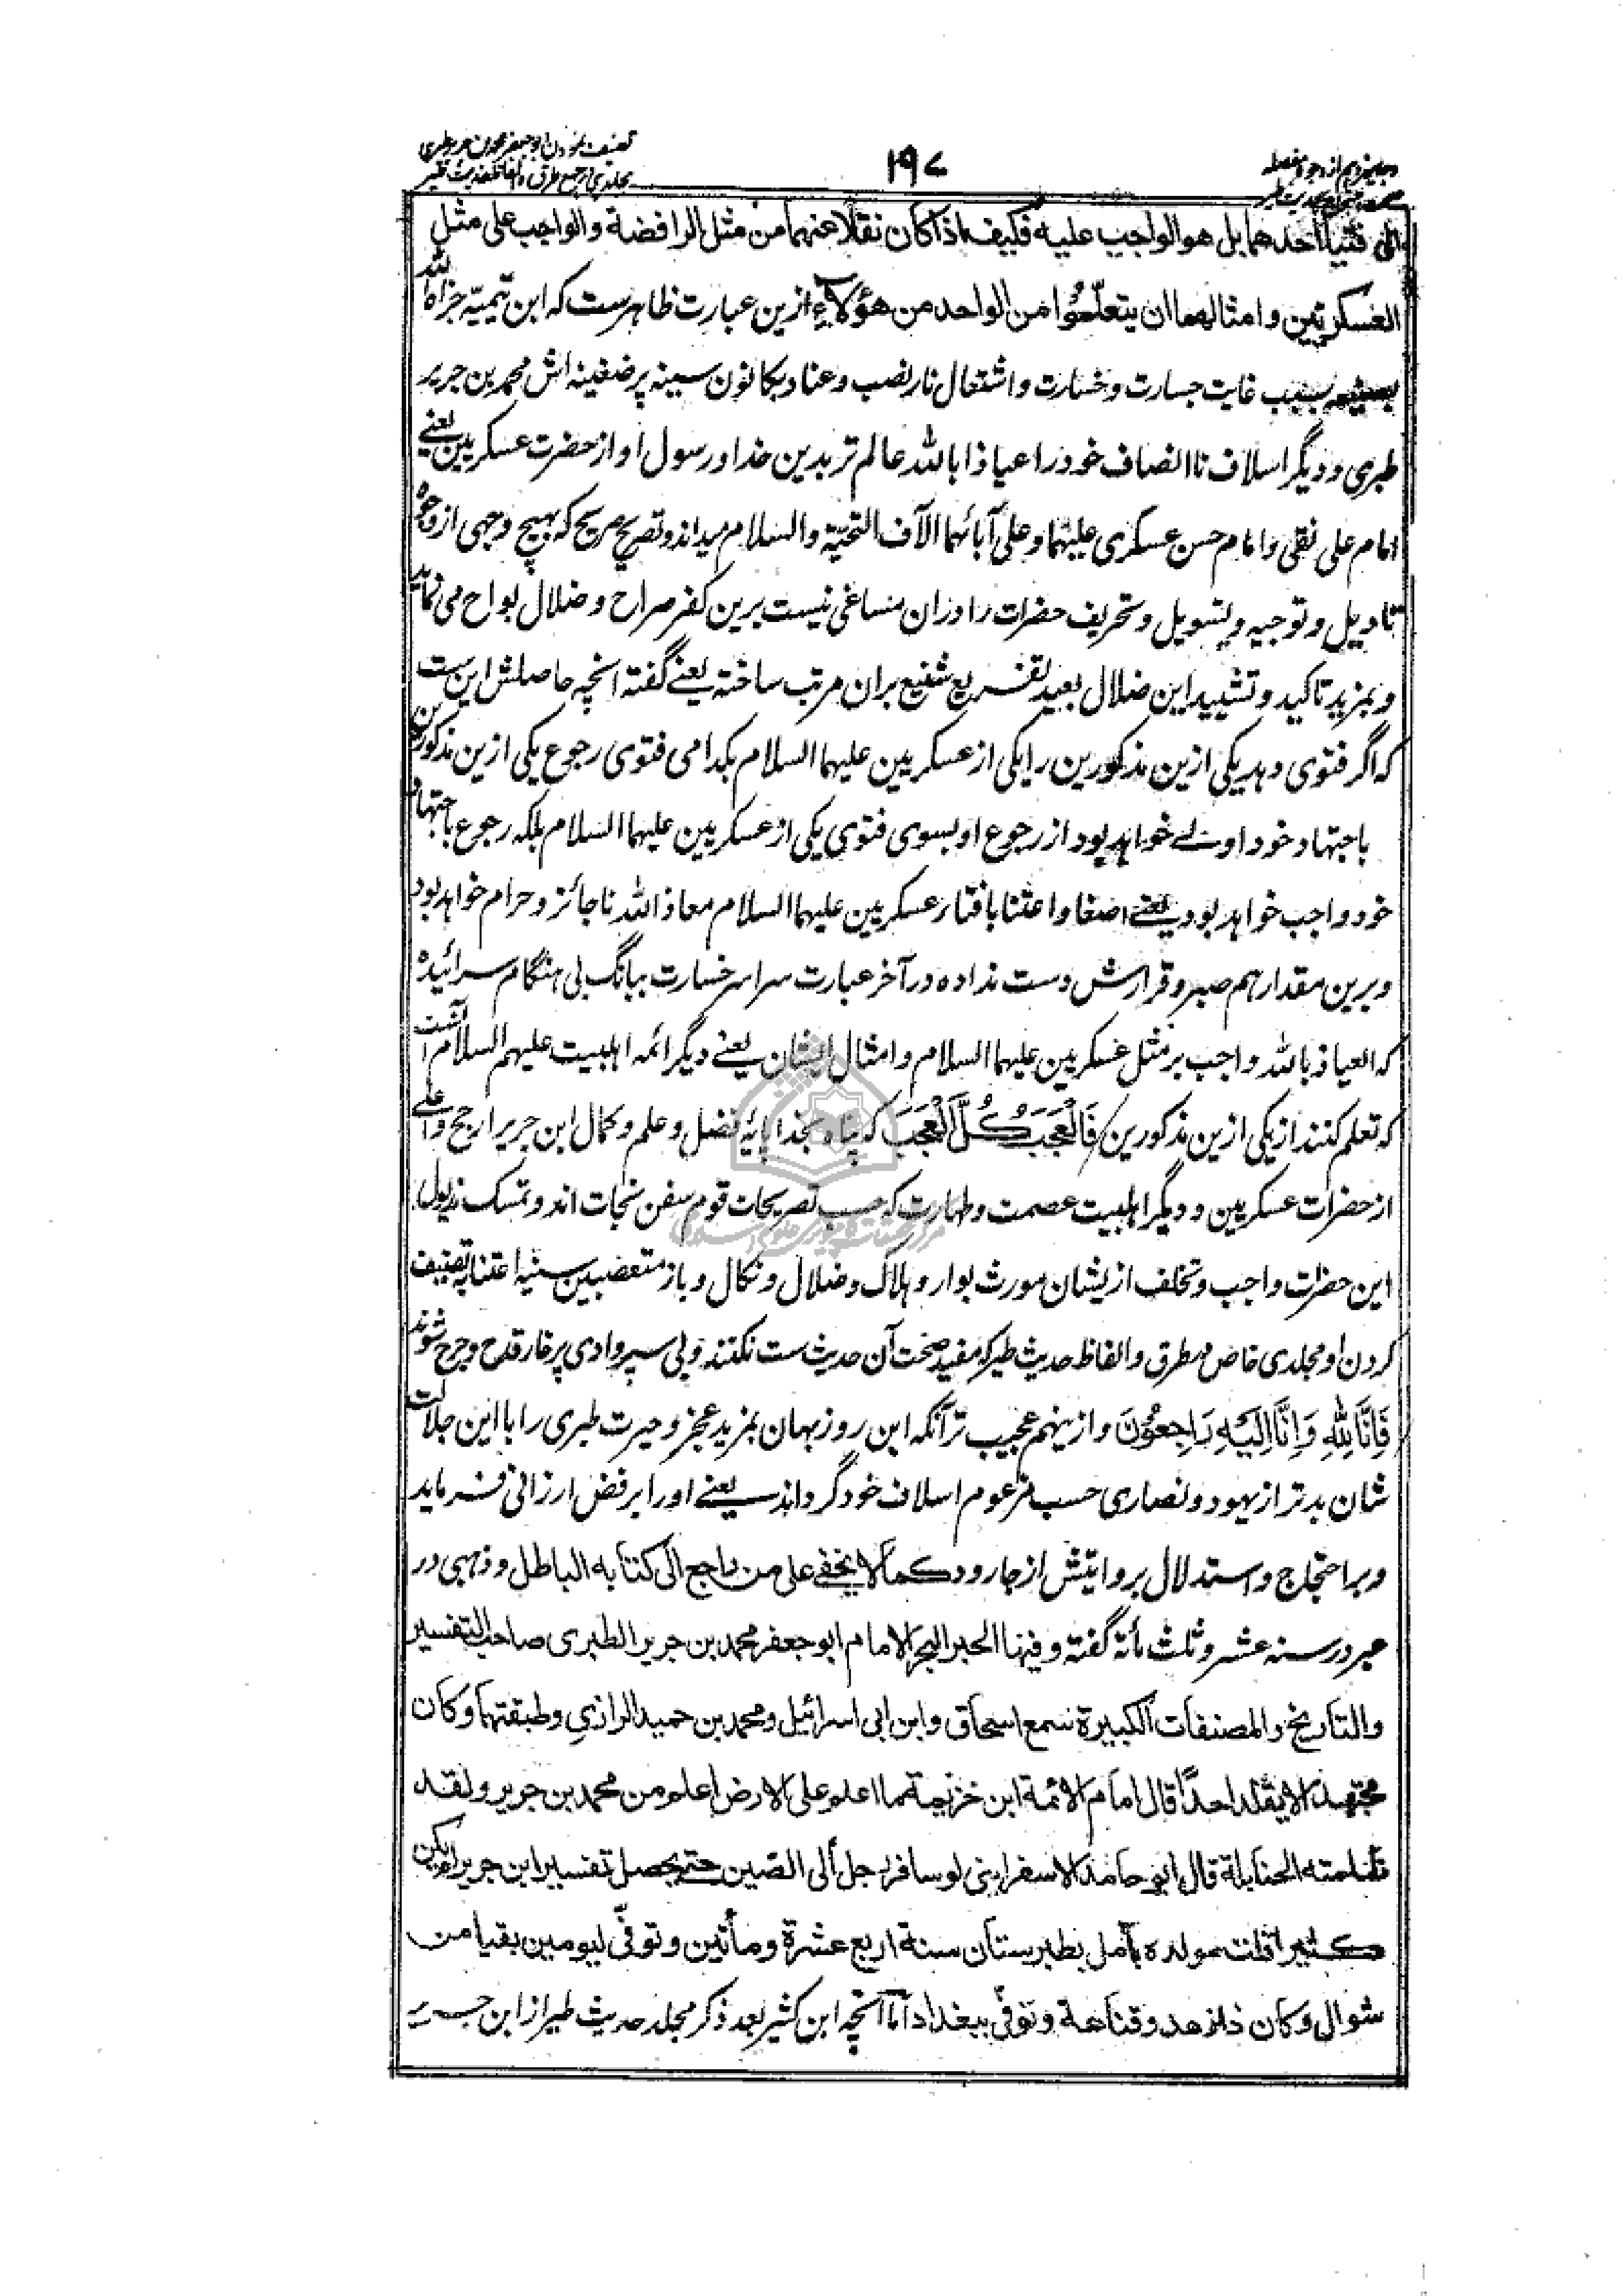 تصنیف نمودن ابو جعفر محمد بن جریر طبری
مجلدی در جمع طرق و الفاظ حدیث طیر
۱۹۷
وجه از وجوه مفصله
حدیث طیر
الى فتيا احدهما بل هو الواجب عليه فكيف اذا كان نقلا عنهما من مثل الرافضة والواجب على مثل
العسكريين وامثالهما ان يتعلّموا من الواحد من هؤلاء ازین عبارت ظاهرست که ابن تیمیه جزاه الله
بسبب غایت جسارت و خسارت و اشتعال نار نصب و عناد بکانون سینه پر ضغینه اش محمد بن جریر
طبری و دیگر اسلاف ناانصاف خود را عیاذا بالله عالم تر بدین خدا و رسول او از حضرت عسکریین یعنے
امام علی نقی و امام حسن عسکری علیهما و علی آبائهما الآف التحیّة والسلام میداند و تصریح صریح که بهیچ وجهی از وجوه
تاویل و توجیه و تسویل و تحریف حضرات را دران مساغی نیست برین کفر صراح و ضلال بواح می نماید
و بمزید تاکید و تشیید این ضلال بعید تفریع شنیع بران مرتب ساخته یعنے گفته انچه حاصلش این ست
که اگر فتوی دهد یکی ازین مذکورین را یکی از عسکریین علیهما السلام بکدامی فتوی رجوع یکی ازین مذکورین
باجتهاد خود اولے خواهد بود از رجوع او بسوی فتوی یکی از عسکریین علیهما السلام بلکه رجوع باجتهاد
خود واجب خواهد بود یعنے اصغا و اعتنا بافتار عسکریین علیهما السلام معاذ الله ناجائز و حرام خواهد بود
و برین مقدار هم صبر و قرارش دست نداده در آخر عبارت سراسر خسارت ببانگ بی هنگام سرائیده
که العیاذ بالله واجب بر مثل عسکریین علیهما السلام و امثال ایشان یعنے دیگر ائمه اهلبیت علیهم السلام آنست
که تعلم کنند از یکی ازین مذکورین فَالْعَجَبُ كُلَّ الْعَجَبِ که پناه بخدا پایهٔ فضل و علم و کمال ابن جریر ارجح و اعلے
از حضرات عسکریین و دیگر اهلبیت عصمت و طهارت که حسب تصریحات قوم سفن نجات اند و تمسک بذیول
این حضرات واجب و تخلف ازیشان مورث بوار و هلاک و ضلال و نکال و باز متعصبین سنیه اعتنا به تصنیف
کردن او مجلدی خاص بطرق و الفاظ حدیث طیر که مفید صحت آن حدیث ست نکنند و پی سپر وادی پرخار قدح و جرح شوند
فَاِنَّا لِلّٰهِ وَاِنَّا اِلَیْهِ رَاجِعُوْنَ و ازینهم عجیب تر آنکه ابن روزبهان بمزید عجز و حیرت طبری را با این جلالت
شان بدتر از یهود و نصاری حسب مزعوم اسلاف خود گرداند یعنے او را برفض ارزانی فرماید
و بر احتجاج و استدلال بروایتش از جا رود كما لا يخفى على من راجع الى كتابه الباطل و ذهبی در
عبر در سنه عشر و ثلث مأة گفته و فيها الحبر البحر الامام ابو جعفر محمد بن جرير الطبرى صاحب التفسير
والتاريخ والمصنفات الكبيرة سمع اسحاق وابن ابى اسرائيل ومحمد بن حميد الرازي وطبقتهما وكان
مجتهدا لا يقلد احدًا قال امام الائمة ابن خزيمة ما اعلم على الارض اعلم من محمد بن جرير ولقد
ظلمته الحنابلة قال ابو حامد الاسفراينى لو سافر رجل الى الصّين حتى يحصل تفسير ابن جرير لم يكن
كثيرا قلت مولده بآمل بطبرستان سنة اربع عشرة ومأتين وتوفّى ليومين بقيا من
شوال وكان ذا زهد وقناعة وتوفّى ببغداد آما آنچه ابن کثیر بعد ذکر مجلد حدیث طیر از ابن جریر